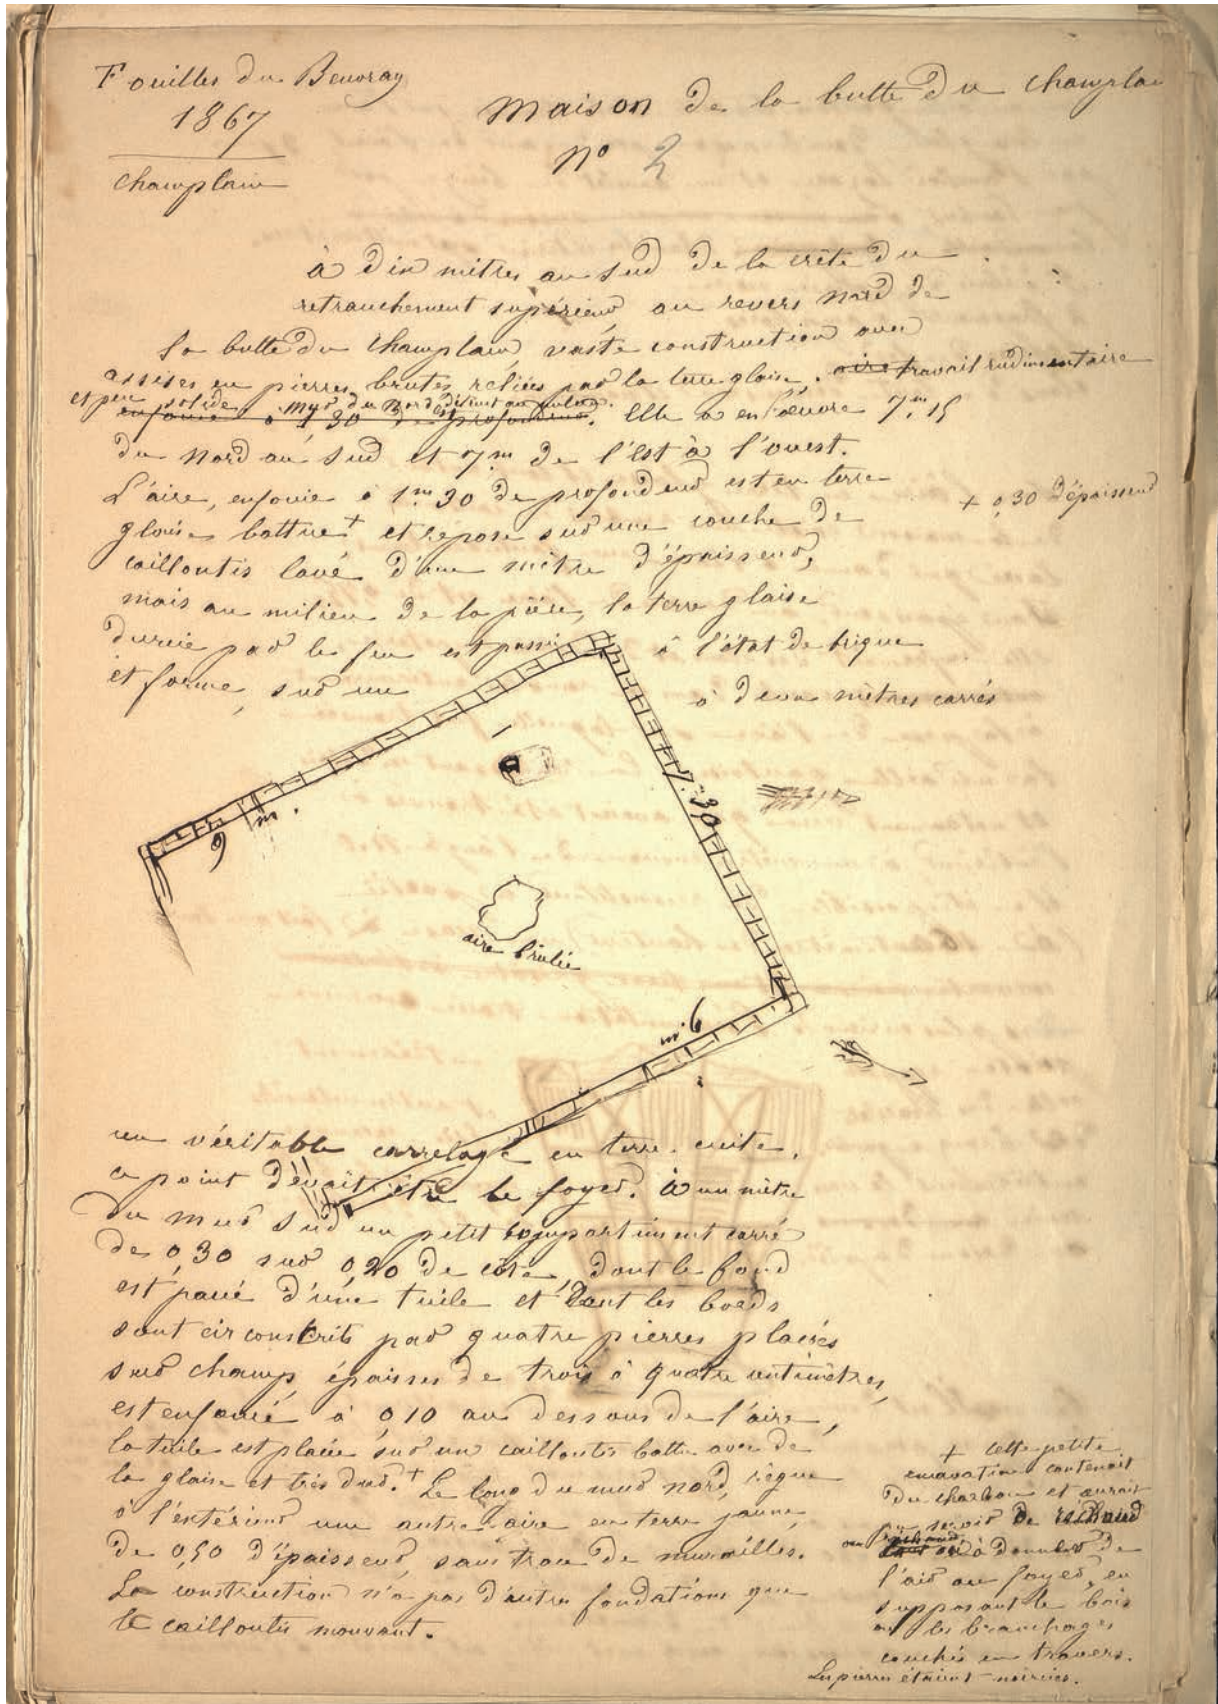 Fouilles du Beuvray
1867
Champlain
Maison de la butte du Champlain
N° 2
à dix mètres au sud de la crête du
retranchement supérieur au revers nord de
la butte du Champlain, vaste construction avec
assises en pierres brutes reliées par la terre glaise, aire travail rudimentaire
et peu solide. Mur du Nord
enfouie à 1 30 de profondeur. Elle a en l'œuvre 7m,15
du Nord au Sud et 7m de l'Est à l'ouest.
L'aire, enfouie à 1m 30 de profondeur est en terre
+ 0,30 d'épaisseur
glaise battue + et repose sur une couche de
cailloutis lavé d'un mètre d'épaisseur,
mais au milieu de la pièce, la terre glaise
durcie par le feu est passée à l'état de brique
et forme, sur un à deux mètres carrés
1
9 m.
7.30
aire brûlée
m. 6
un véritable carrelage en terre cuite,
ce point devait être le foyer. À un mètre
du mur sud un petit compartiment carré
de 0,30 sur 0,20 de côté, dont le fond
est pavé d'une tuile et dont les bords
sont circonscrits par quatre pierres placées
sur champ, épaisses de trois à quatre centimètres,
est enfoui à 0 10 au dessous de l'aire,
la tuile est placée sur un cailloutis battu avec de
la glaise et très dur. + Le long du mur nord, règne
à l'extérieur une autre aire en terre jaune,
de 0,50 d'épaisseur, sans trace de murailles.
La construction n'a pas d'autres fondations que
le cailloutis mouvant.
+ cette petite
excavation contenait
du charbon et aurait
pu servir de réchaud
ou à donner de
l'air au foyer, en
supposant le bois
ou les branchages
couchés en travers.
Les pierres étaient noircies.